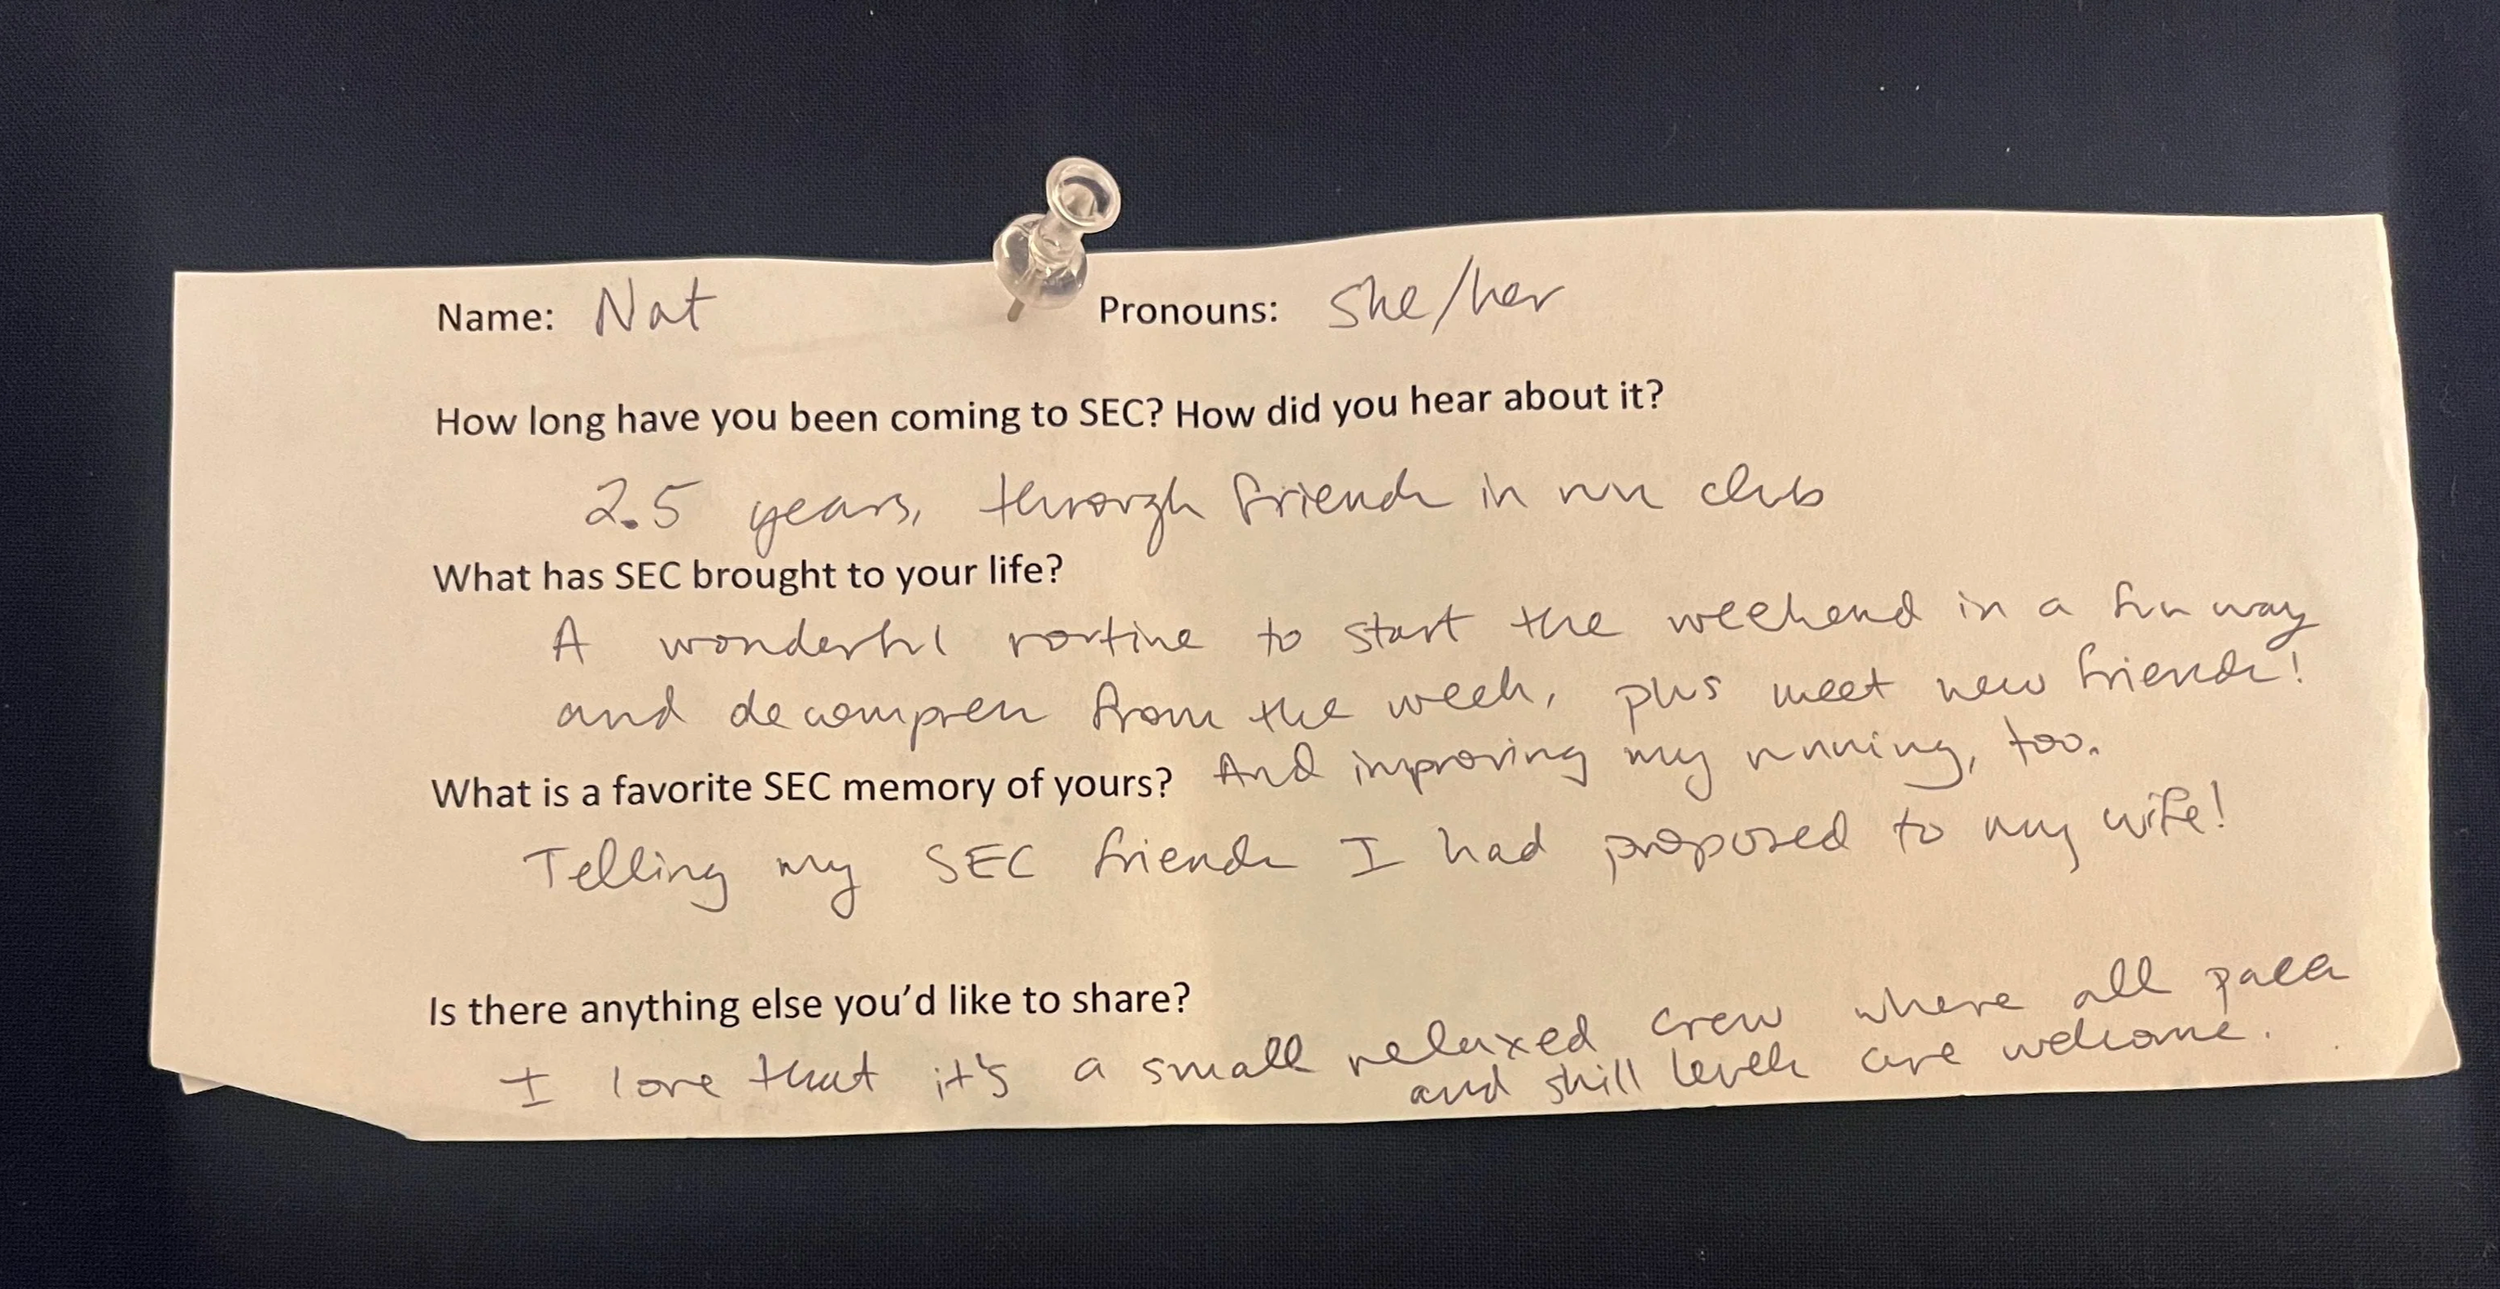 Name: Nat Pronouns: she/her
How long have you been coming to SEC? How did you hear about it?
2.5 years, through friends in run club
What has SEC brought to your life?
A wonderful routine to start the weekend in a fun way
and decompress from the week, plus meet new friends!
And improving my running, too.
What is a favorite SEC memory of yours?
Telling my SEC friends I had proposed to my wife!
Is there anything else you'd like to share?
I love that it's a small relaxed crew where all paces
and skill levels are welcome.